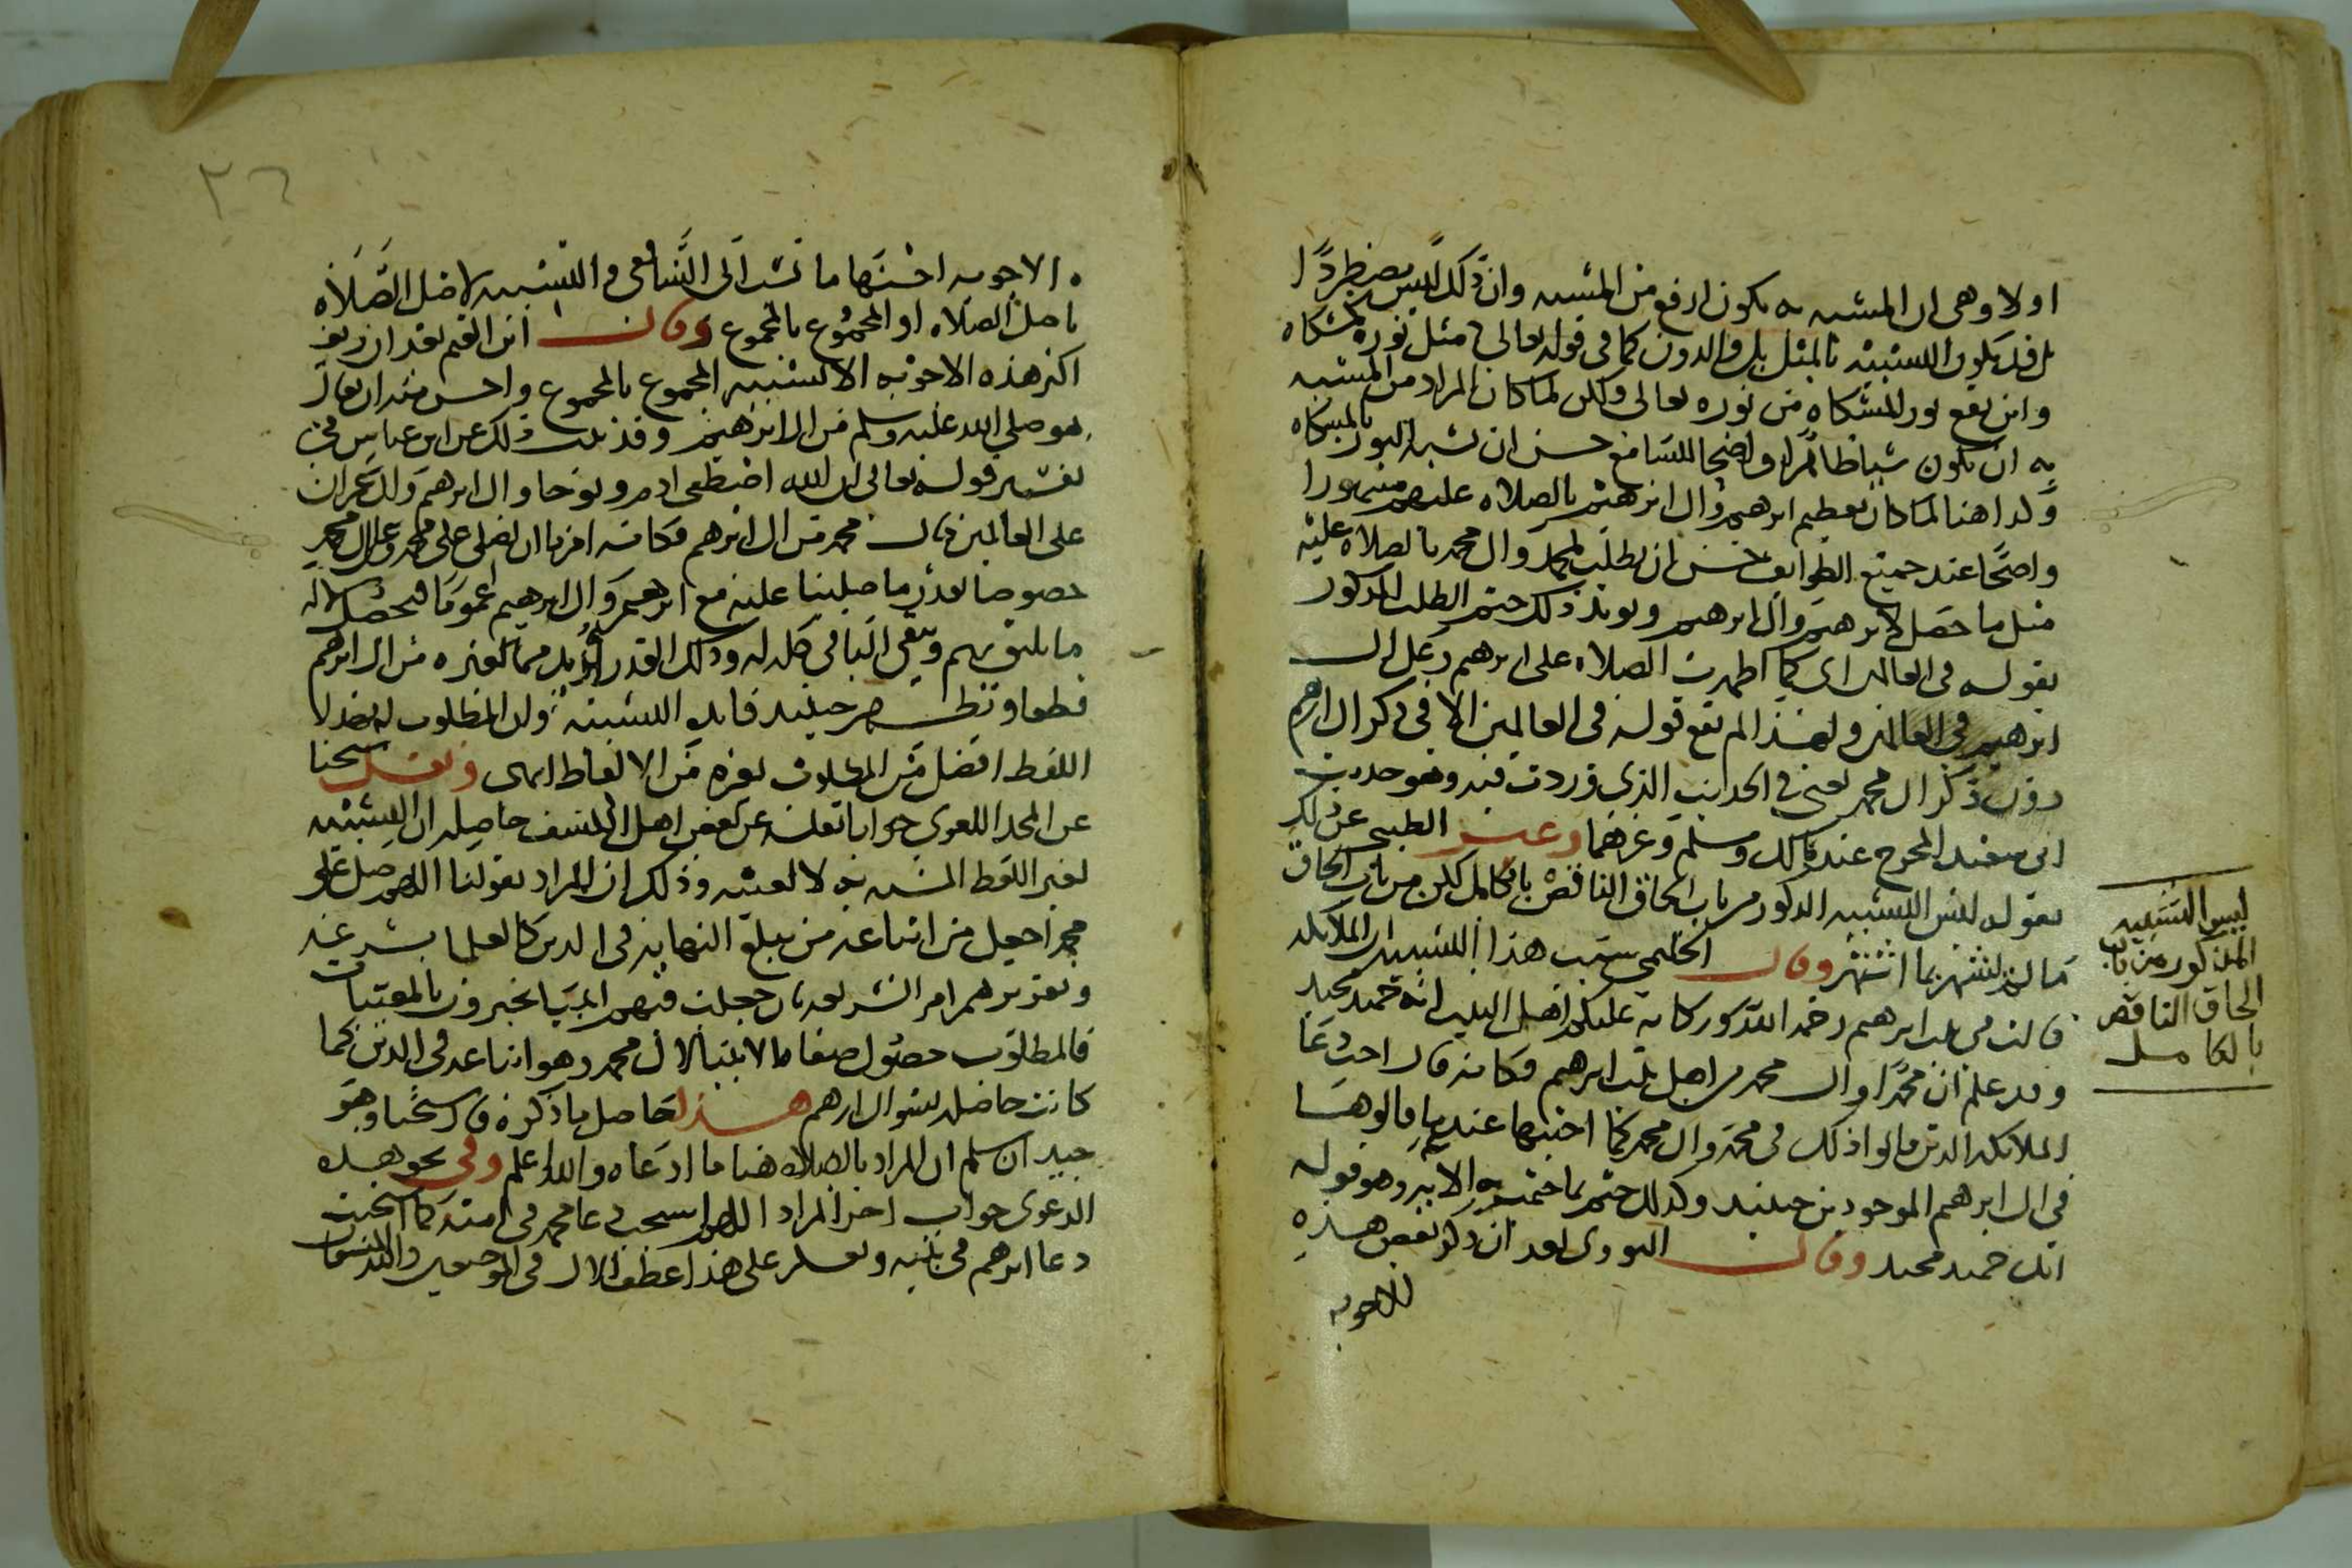 اولا وهى ان المشبه به يكون ارفع من المشبه وان ذلك ليس بمضطردا
بل قد يكون التشبيه بالمثل بل والدون كما فى قوله تعالى مثل نوره كمشكاه
واين يقع نور المشكاه من نوره تعالى ولكن لما كان المراد من المشبه
به ان يكون شيا ظاهرا واضحا للسامع حسن ان يشبه النور بالمشكاه
وكذا هنا لما كان تعظيم ابرهيم وال ابرهيم بالصلاه عليهم مشهورا
واضحا عند جميع الطوايف حسن ان يطلب لمحمد وال محمد بالصلاه عليه
مثل ما حصل لابرهيم وال ابرهيم ويويد ذلك ختم الطلب المذكور
بقوله فى العالمين اى كما اظهرت الصلاه على ابرهيم وعلى ال
ابرهيم فى العالمين ولهذا لم يقع قوله فى العالمين الا فى ذكر ال ابرهيم
دون ذكر ال محمد يعنى فى الحديث الذى وردت فيه وهو حديث
ابى مسعود المخرج عند مالك ومسلم وغيرهما وعبر الطيبى عن ذلك
بقوله ليس التشبيه المذكور من باب الحاق الناقص بالكامل لكن من باب الحاق
ما لم يشتهر بما اشتهر وقال الحليمى سبب هذا التشبيه ان الملايكه
قالت فى بيت ابرهيم رحمه الله وبركاته عليكم اهل البيت انه حميد مجيد
وقد علم ان محمدا وال محمد من اهل بيت ابرهيم فكانه قال اجب دعا
الملايكه الذين قالوا ذلك فى محمد وال محمد كما اجبتها عند ما قالوها
فى ال ابرهيم الموجودين حينيذ وكذلك ختم بما ختمت به الايه وهو قوله
انك حميد مجيد وقال النووى بعد ان ذكر بعض هذه
الاجوبه
ليس التشبيه
المذكور من باب
الحاق الناقص
بالكامل
٣٦
الاجوبه احسنها ما نسب الى الشافعى والتشبيه لاصل الصلاه
باصل الصلاه او المجموع بالمجموع وقال ابن القيم بعد ان زيف
اكثر هذه الاجوبه الا تشبيه المجموع بالمجموع واحسن منه ان يقال
هو صلى الله عليه وسلم من ال ابرهيم وقد ثبت ذلك عن ابن عباس فى
تفسير قوله تعالى ان الله اصطفى ادم ونوحا وال ابرهيم وال عمران
على العالمين قال محمد من ال ابرهيم فكانه امرنا ان نصلى على محمد وعلى ال محمد
خصوصا بقدر ما صلينا عليه مع ابرهيم وال ابرهيم عموما فيحصل لاله
ما يليق بهم ويبقى الباقى كله له وذلك القدر ازيد مما لغيره من ال ابرهيم
قطعا وتظهر حينيذ فايده التشبيه وان المطلوب له بهذا
اللفظ افضل من المطلوب بغيره من الالفاظ انتهى ونقل شيخنا
عن المجد اللغوى جوابا نقله عن بعض اهل الكشف حاصله ان التشبيه
لغير اللفظ المشبه به لا لعينه وذلك ان المراد بقولنا اللهم صل على
محمد اجعل من اتباعه من يبلغ النهايه فى الدين كالعلما بشرعه
وتقريرهم امر الشريعه بان جعلت فيهم انبيا يخبرون بالمغيبات
فالمطلوب حصول صفات الانبيا لال محمد وهو اتباعه فى الدين كما
كانت حاصله بسوال ابرهيم هذا حاصل ما ذكره قال شيخنا وهو
جيد ان سلم ان المراد بالصلاه هنا ما ادعاه والله اعلم وفى نحو هذه
الدعوى جواب اخر المراد اللهم استجب دعا محمد فى امته كما استجبت
دعا ابرهيم فى بنيه ويعكر على هذا عطف الال فى الموضعين والله المستعان